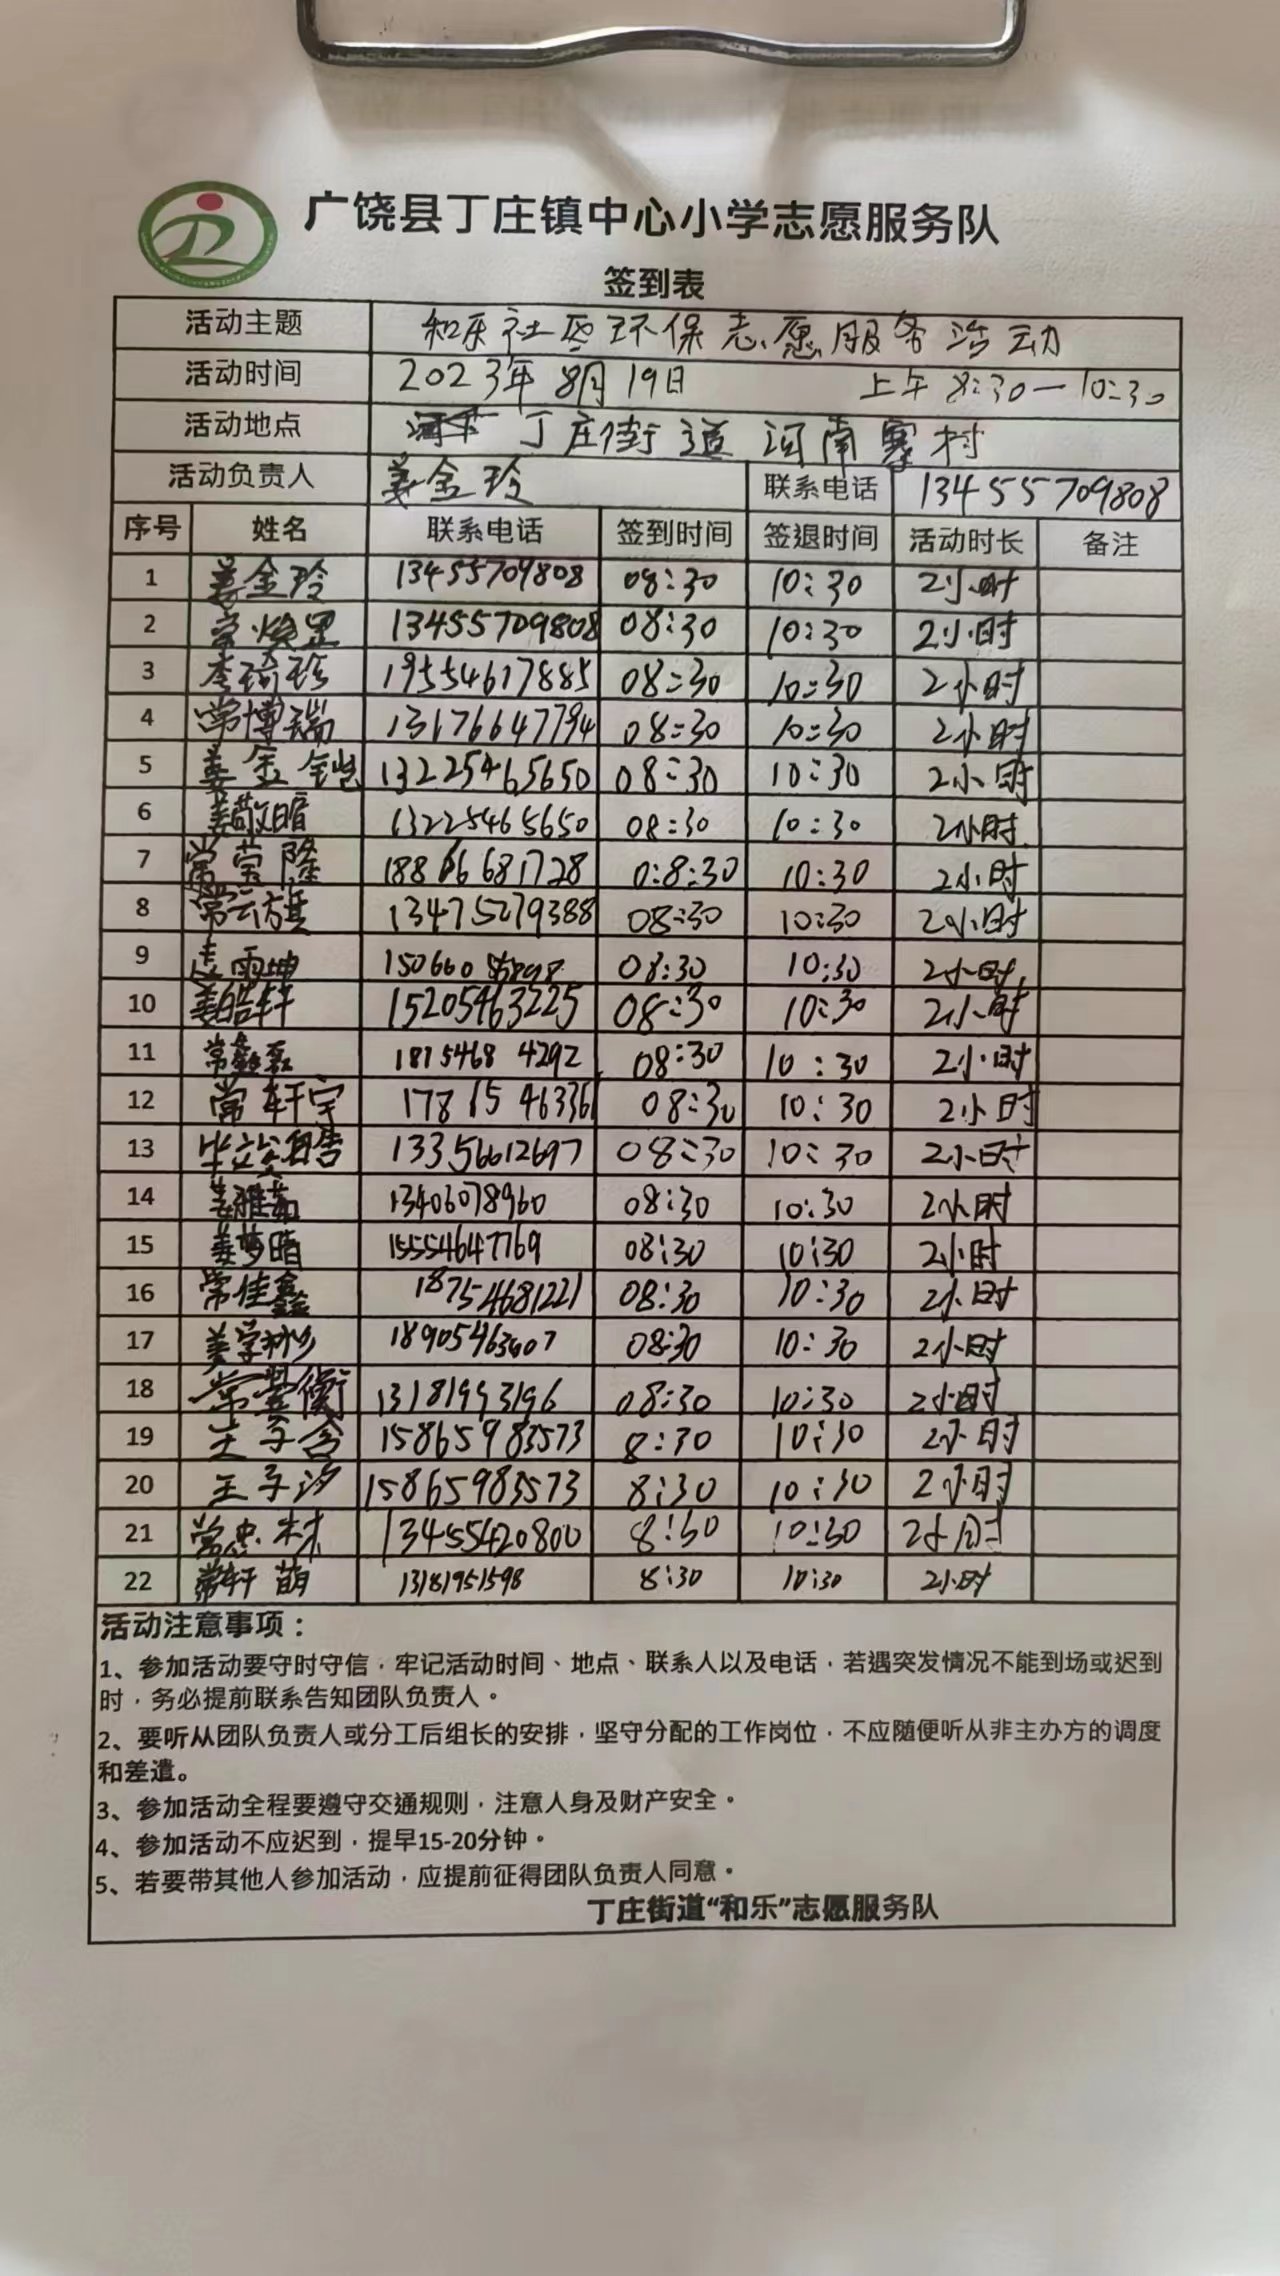 广饶县丁庄镇中心小学志愿服务队
签到表
活动主题 和乐社区环保志愿服务活动
活动时间 2023年8月19日 上午8:30—10:30
活动地点 丁庄街道河南寨村
活动负责人 姜金玲 联系电话 13455709808
序号 姓名 联系电话 签到时间 签退时间 活动时长 备注
1 姜金玲 13455709808 08:30 10:30 2小时
2 13455709808 08:30 10:30 2小时
3 李琦珍 19554617885 08:30 10:30 2小时
4 常博瑞 13176647794 08:30 10:30 2小时
5 姜金铠 13225465650 08:30 10:30 2小时
6 姜敬暄 13225465650 08:30 10:30 2小时
7 常荣隆 18866681728 0:8:30 10:30 2小时
8 常云旗 13475279388 08:30 10:30 2小时
9 孟雨坤 08:30 10:30 2小时
10 姜皓轩 15205463225 08:30 10:30 2小时
11 常鑫磊 1815468 4292 08:30 10:30 2小时
12 常轩宇 17865 46336 08:30 10:30 2小时
13 13356612697 08:30 10:30 2小时
14 姜雅茹 13406078960 08:30 10:30 2小时
15 姜梦晴 15554647769 08:30 10:30 2小时
16 常佳鑫 18754681221 08:30 10:30 2小时
17 08:30 10:30 2小时
18 13181993196 08:30 10:30 2小时
19 王子含 15865983573 8:30 10:30 2小时
20 王子汐 15865983573 8:30 10:30 2小时
21 常忠林 13455420800 8:30 10:30 2小时
22 常轩萌 13181951598 8:30 10:30 2小时
活动注意事项：
1、参加活动要守时守信，牢记活动时间、地点、联系人以及电话，若遇突发情况不能到场或迟到
时，务必提前联系告知团队负责人。
2、要听从团队负责人或分工后组长的安排，坚守分配的工作岗位，不应随便听从非主办方的调度
和差遣。
3、参加活动全程要遵守交通规则，注意人身及财产安全。
4、参加活动不应迟到，提早15-20分钟。
5、若要带其他人参加活动，应提前征得团队负责人同意。
丁庄街道“和乐”志愿服务队